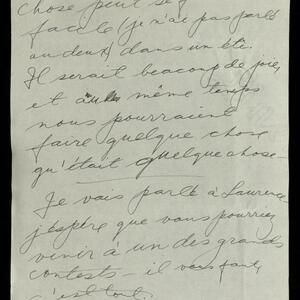 chose peut se
facile (je n'ai pas parlé
au deux) dans un été.
Il serait beaucoup de joie,
et même temps
nous pourraient
faire quelque chose
qu'était quelque chose—
Je vais parlé à Laurence
j'espère que vous pourriez
venir à un des grands
contests — il vous faut,
c'est tout.